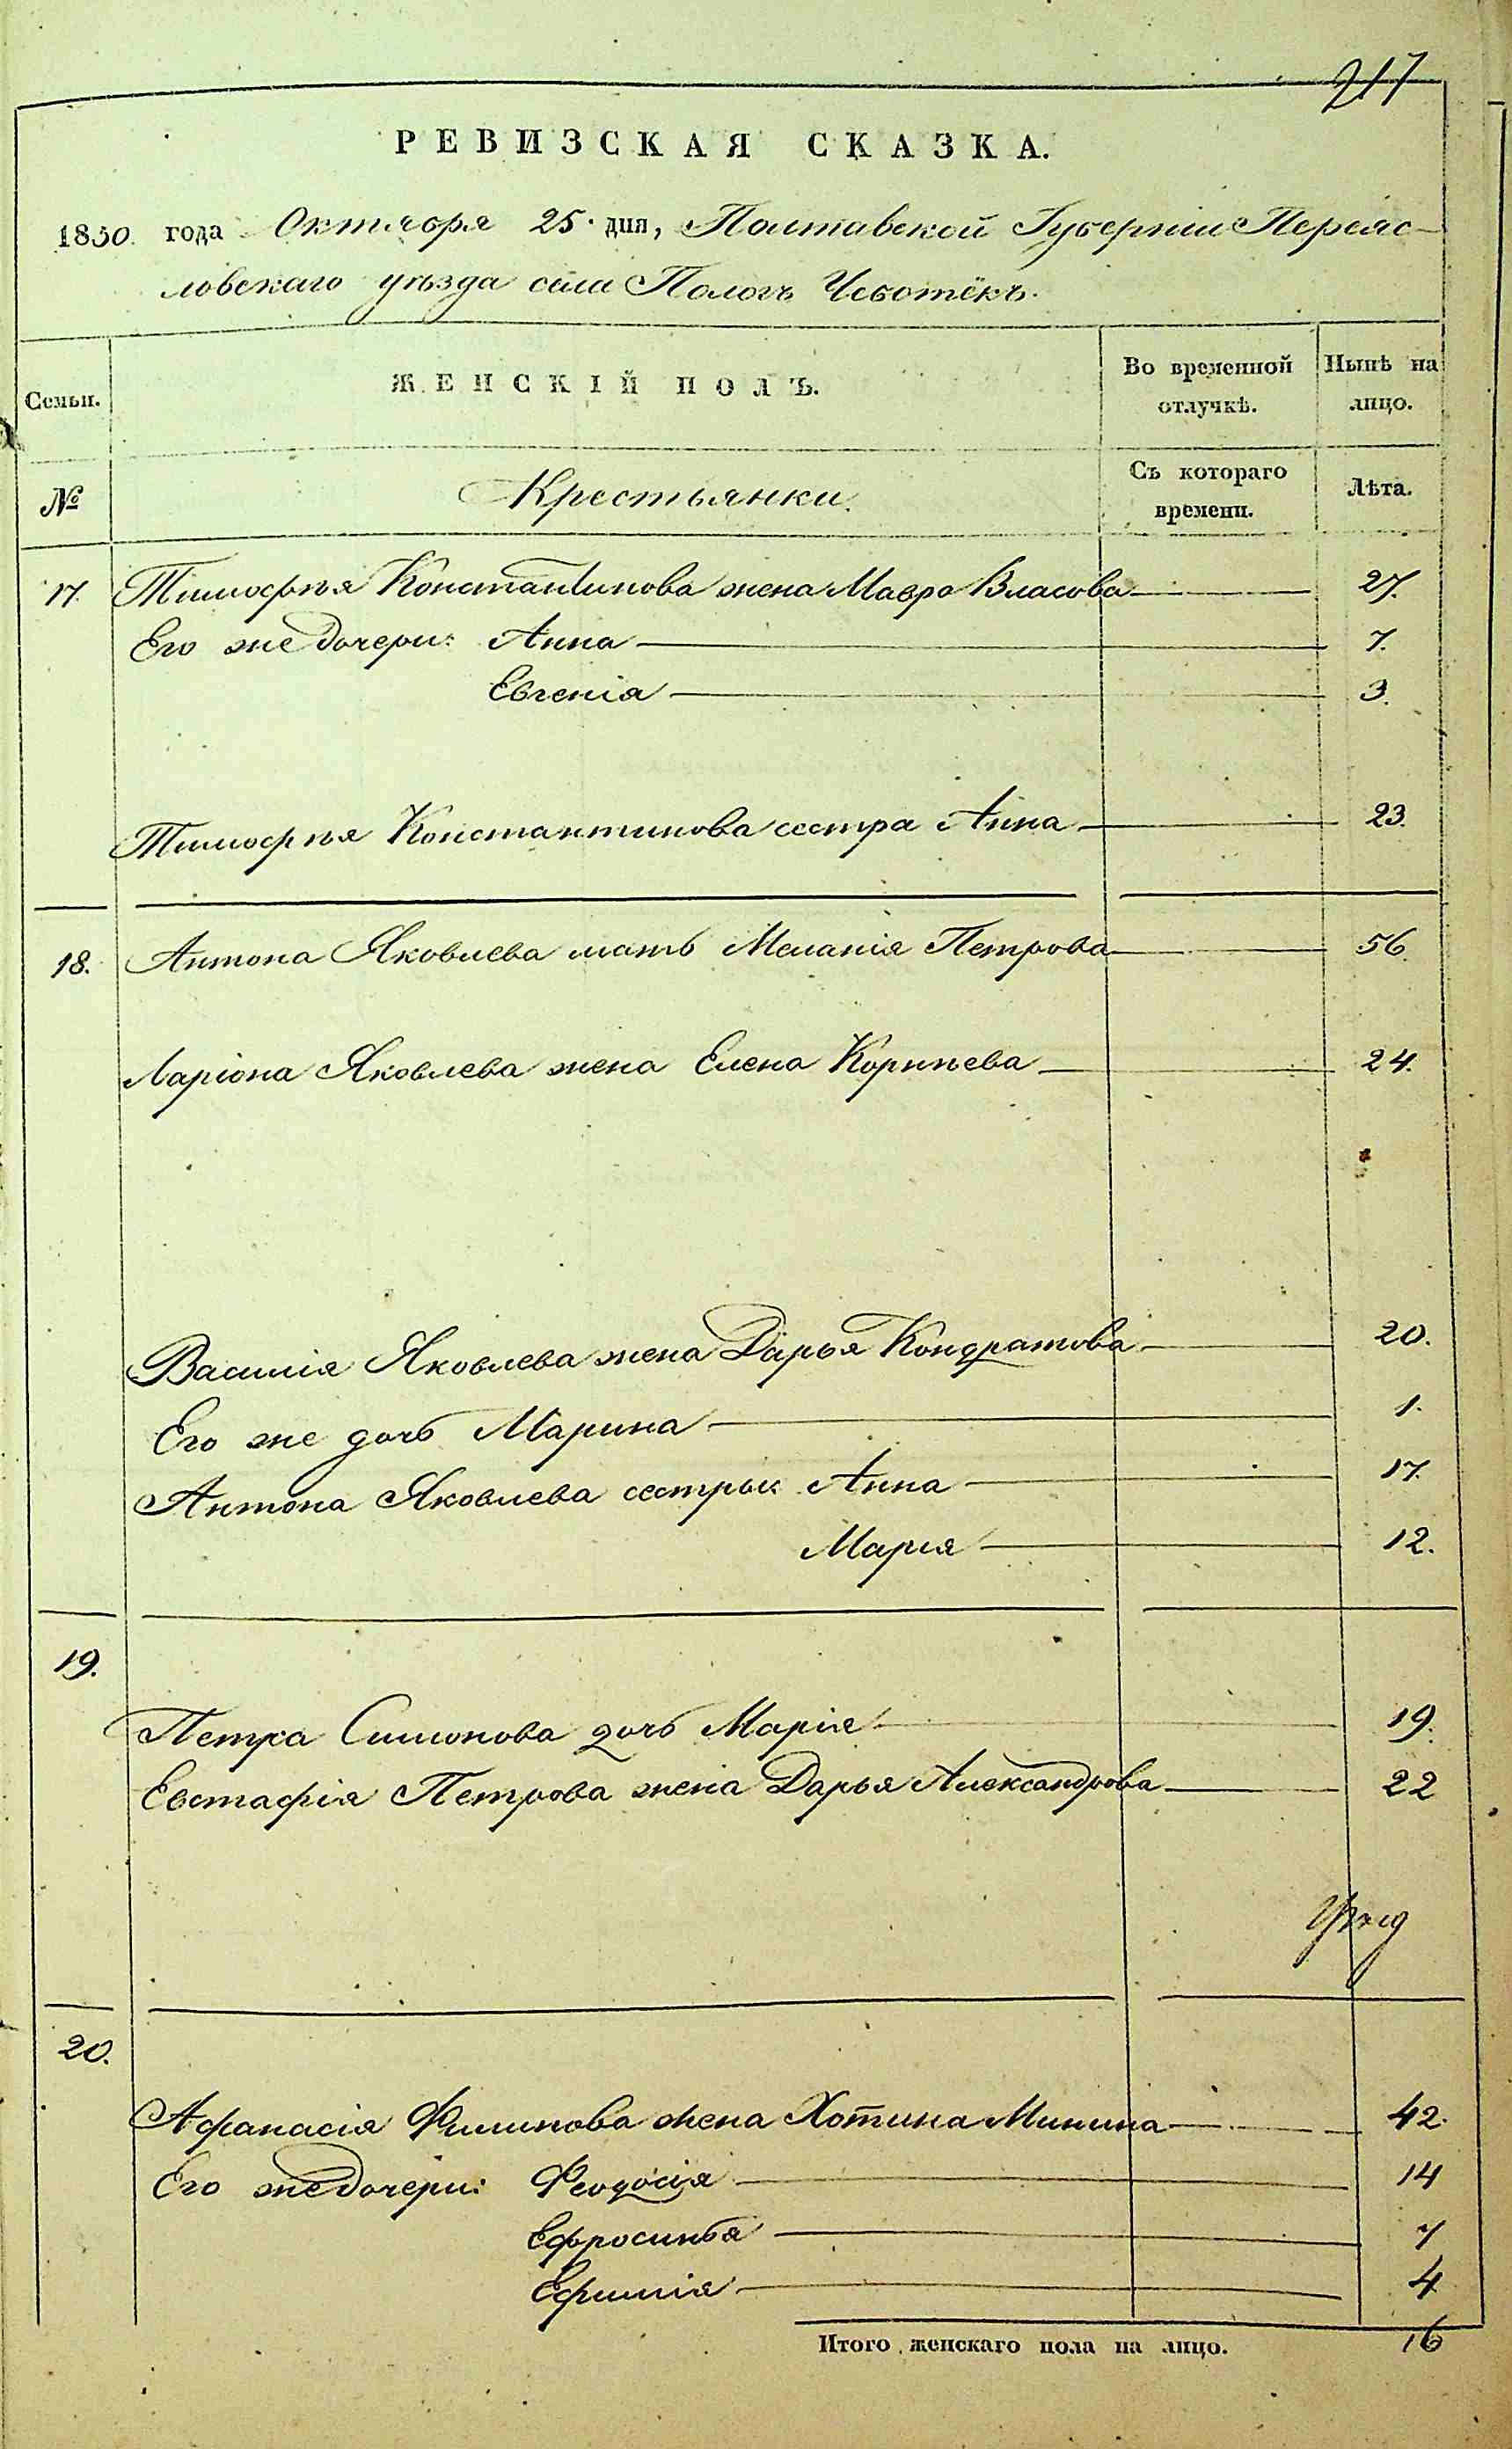 217
РЕВИЗСКАЯ СКАЗКА.
1850 года Октября 25. дня, Полтавской Губерніи Переяс-
ловскаго уѣзда села Пологъ Чеботёкъ.
Семьи. ЖЕНСКІЙ ПОЛЪ. Во временной отлучкѣ. Нынѣ на лицо.
№ Крестьянки. Съ котораго времени. Лѣта.
17. Тимофѣя Константинова жена Мавра Власова 27.
Его же дочери: Анна 7.
Евгенія 3.
Тимофѣя Константинова сестра Анна 23.
18. Антона Яковлева мать Меланія Петрова 56.
Ларіона Яковлева жена Елена Корнѣева 24.
Василія Яковлева жена Дарья Кондратова 20.
Его же дочь Марина 1.
Антона Яковлева сестры: Анна 17.
Марія 12.
19.
Петра Симонова дочь Марія 19.
Евстафія Петрова жена Дарья Александрова 22
20.
Афанасія Филипова жена Хотина Минина 42.
Его же дочери: Феодосія 14
Ефросинья 7
Ефимія 4
Итого женскаго пола на лицо. 16